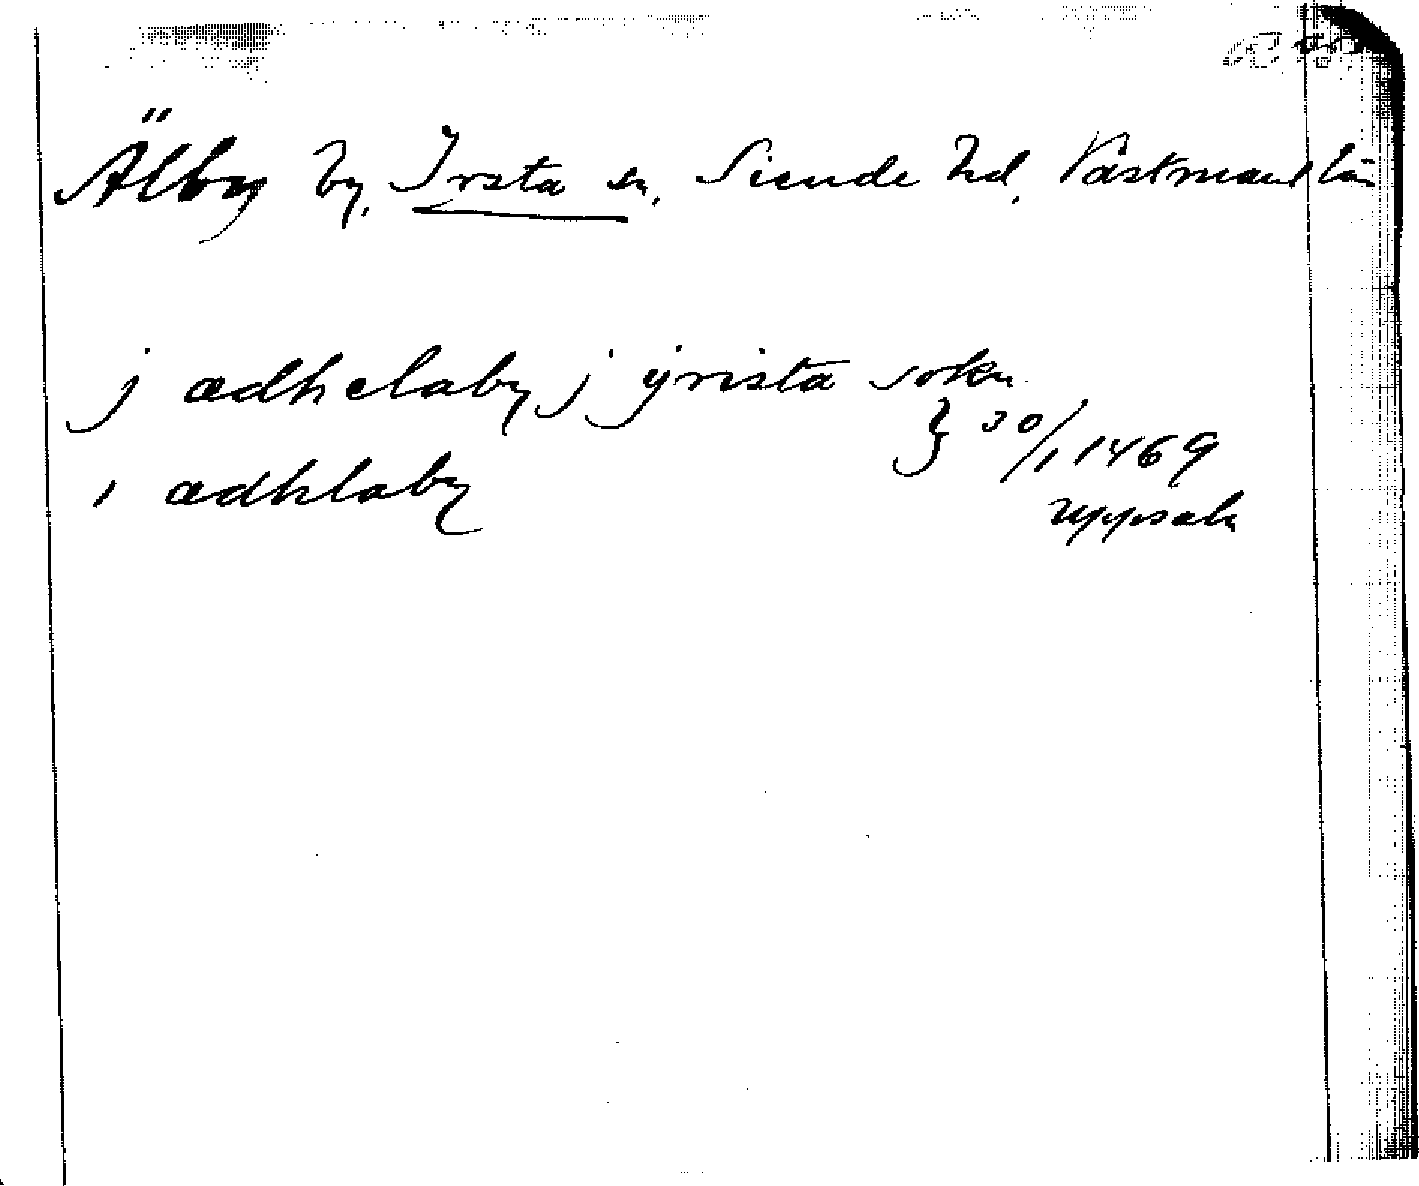 Älby by, Irsta sn, Siende hd, Västmanl län
j ædhelaby j yrista sokn
i ædhlaby } 30/1 1469
Uppsala